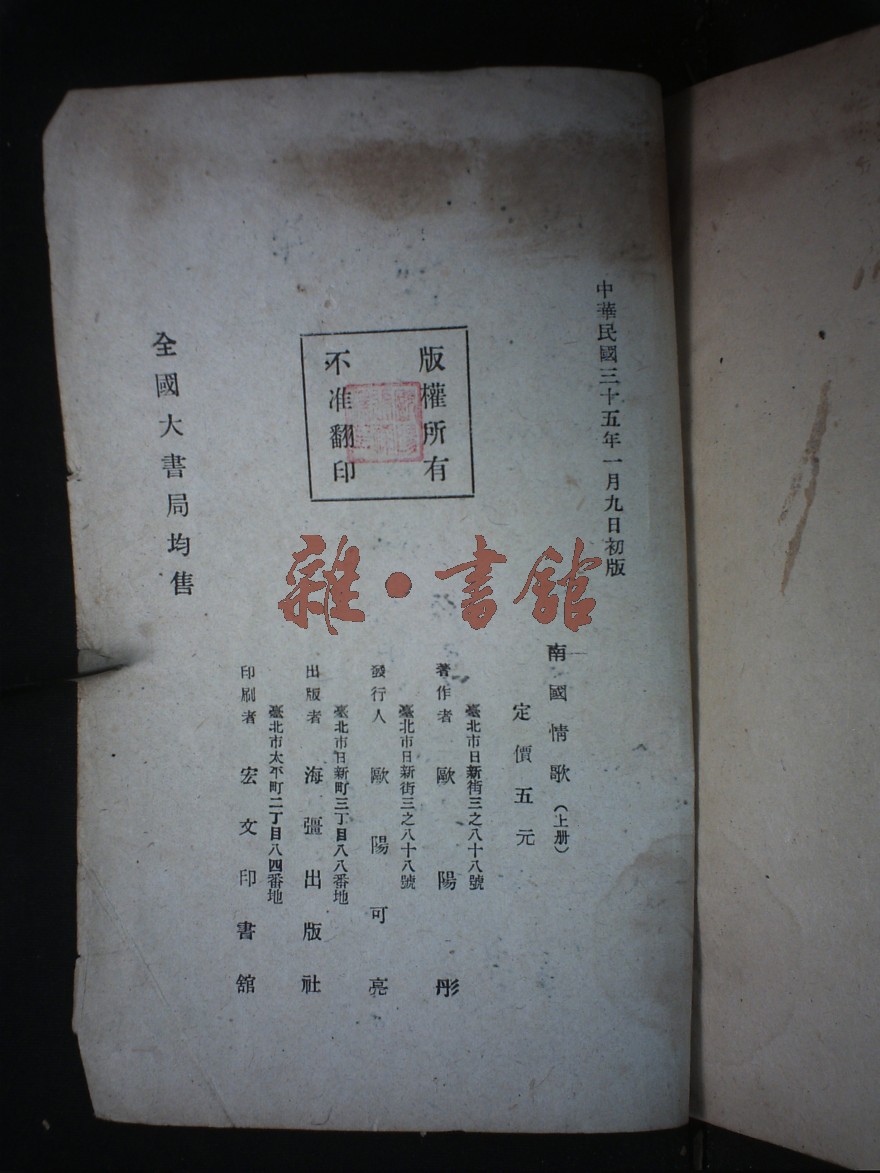 中華民國三十五年一月九日初版
版權所有
不准翻印
南國情歌（上册）
定價五元
臺北市日新街三之八十八號
著作者 歐陽彤
臺北市日新街三之八十八號
發行人 歐陽可亮
臺北市日新町三丁目八八番地
出版者 海彊出版社
臺北市太平町二丁目八四番地
印刷者 宏文印書舘
全國大書局均售
雜·書舘